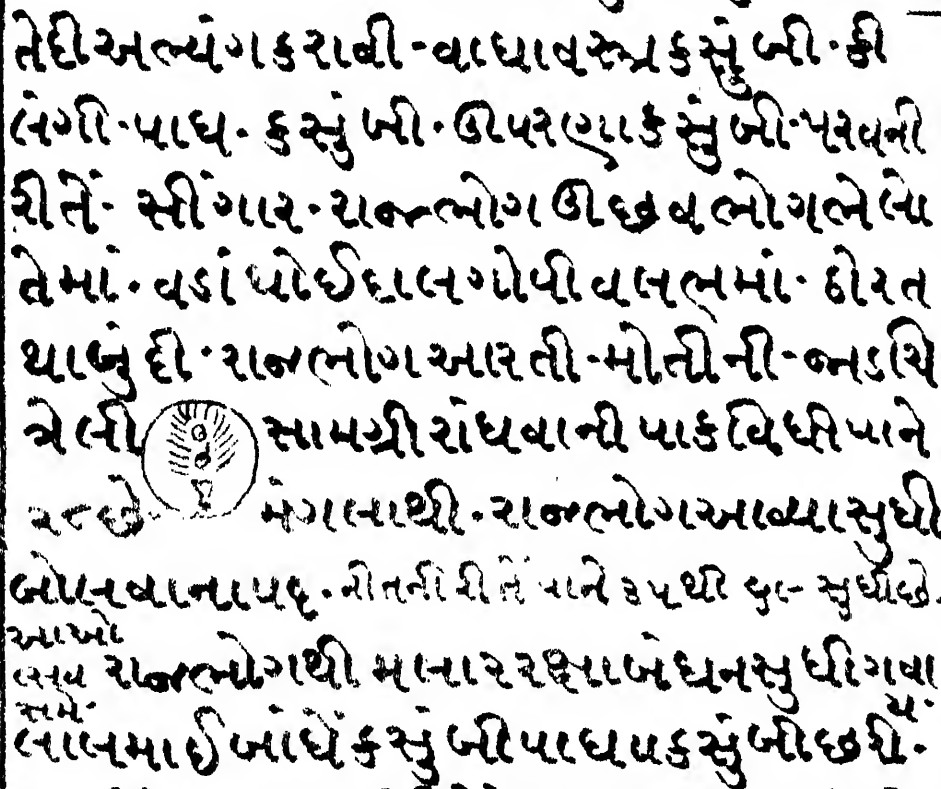 તેદી અભ્યંગ કરાવી - વાઘા વસ્ત્ર કસુંબી · કી
લંગી · પાઘ · કસુંબી · ઊપરણા કસુંબી · પરવની
રીતેં · સીંગાર · રાજભોગ ઊછવ ભોગ ભેલો
તેમાં · વડાં ધોઈ દાલ ગોપીવલભમાં · ઠોર ત
થા બુંદી · રાજભોગ આરતી - મોતીની - જાડ ચિ
ત્રેલી સામગ્રી રાંધવાની પાક વિધી પાને
૨૮ છે મંગલાથી · રાજભોગ આવ્યા સુધી
બોલવાના પદ · નીતની રીતેં પાને ૩૫ થી સુધી છે ·
આખો
રાજભોગથી મલાર રક્ષાબંધન સુધી ગવા
સમે ય ·
લાલમાઈ બાંધેં કસુંબી પાઘ પકસુંબી છરી ·